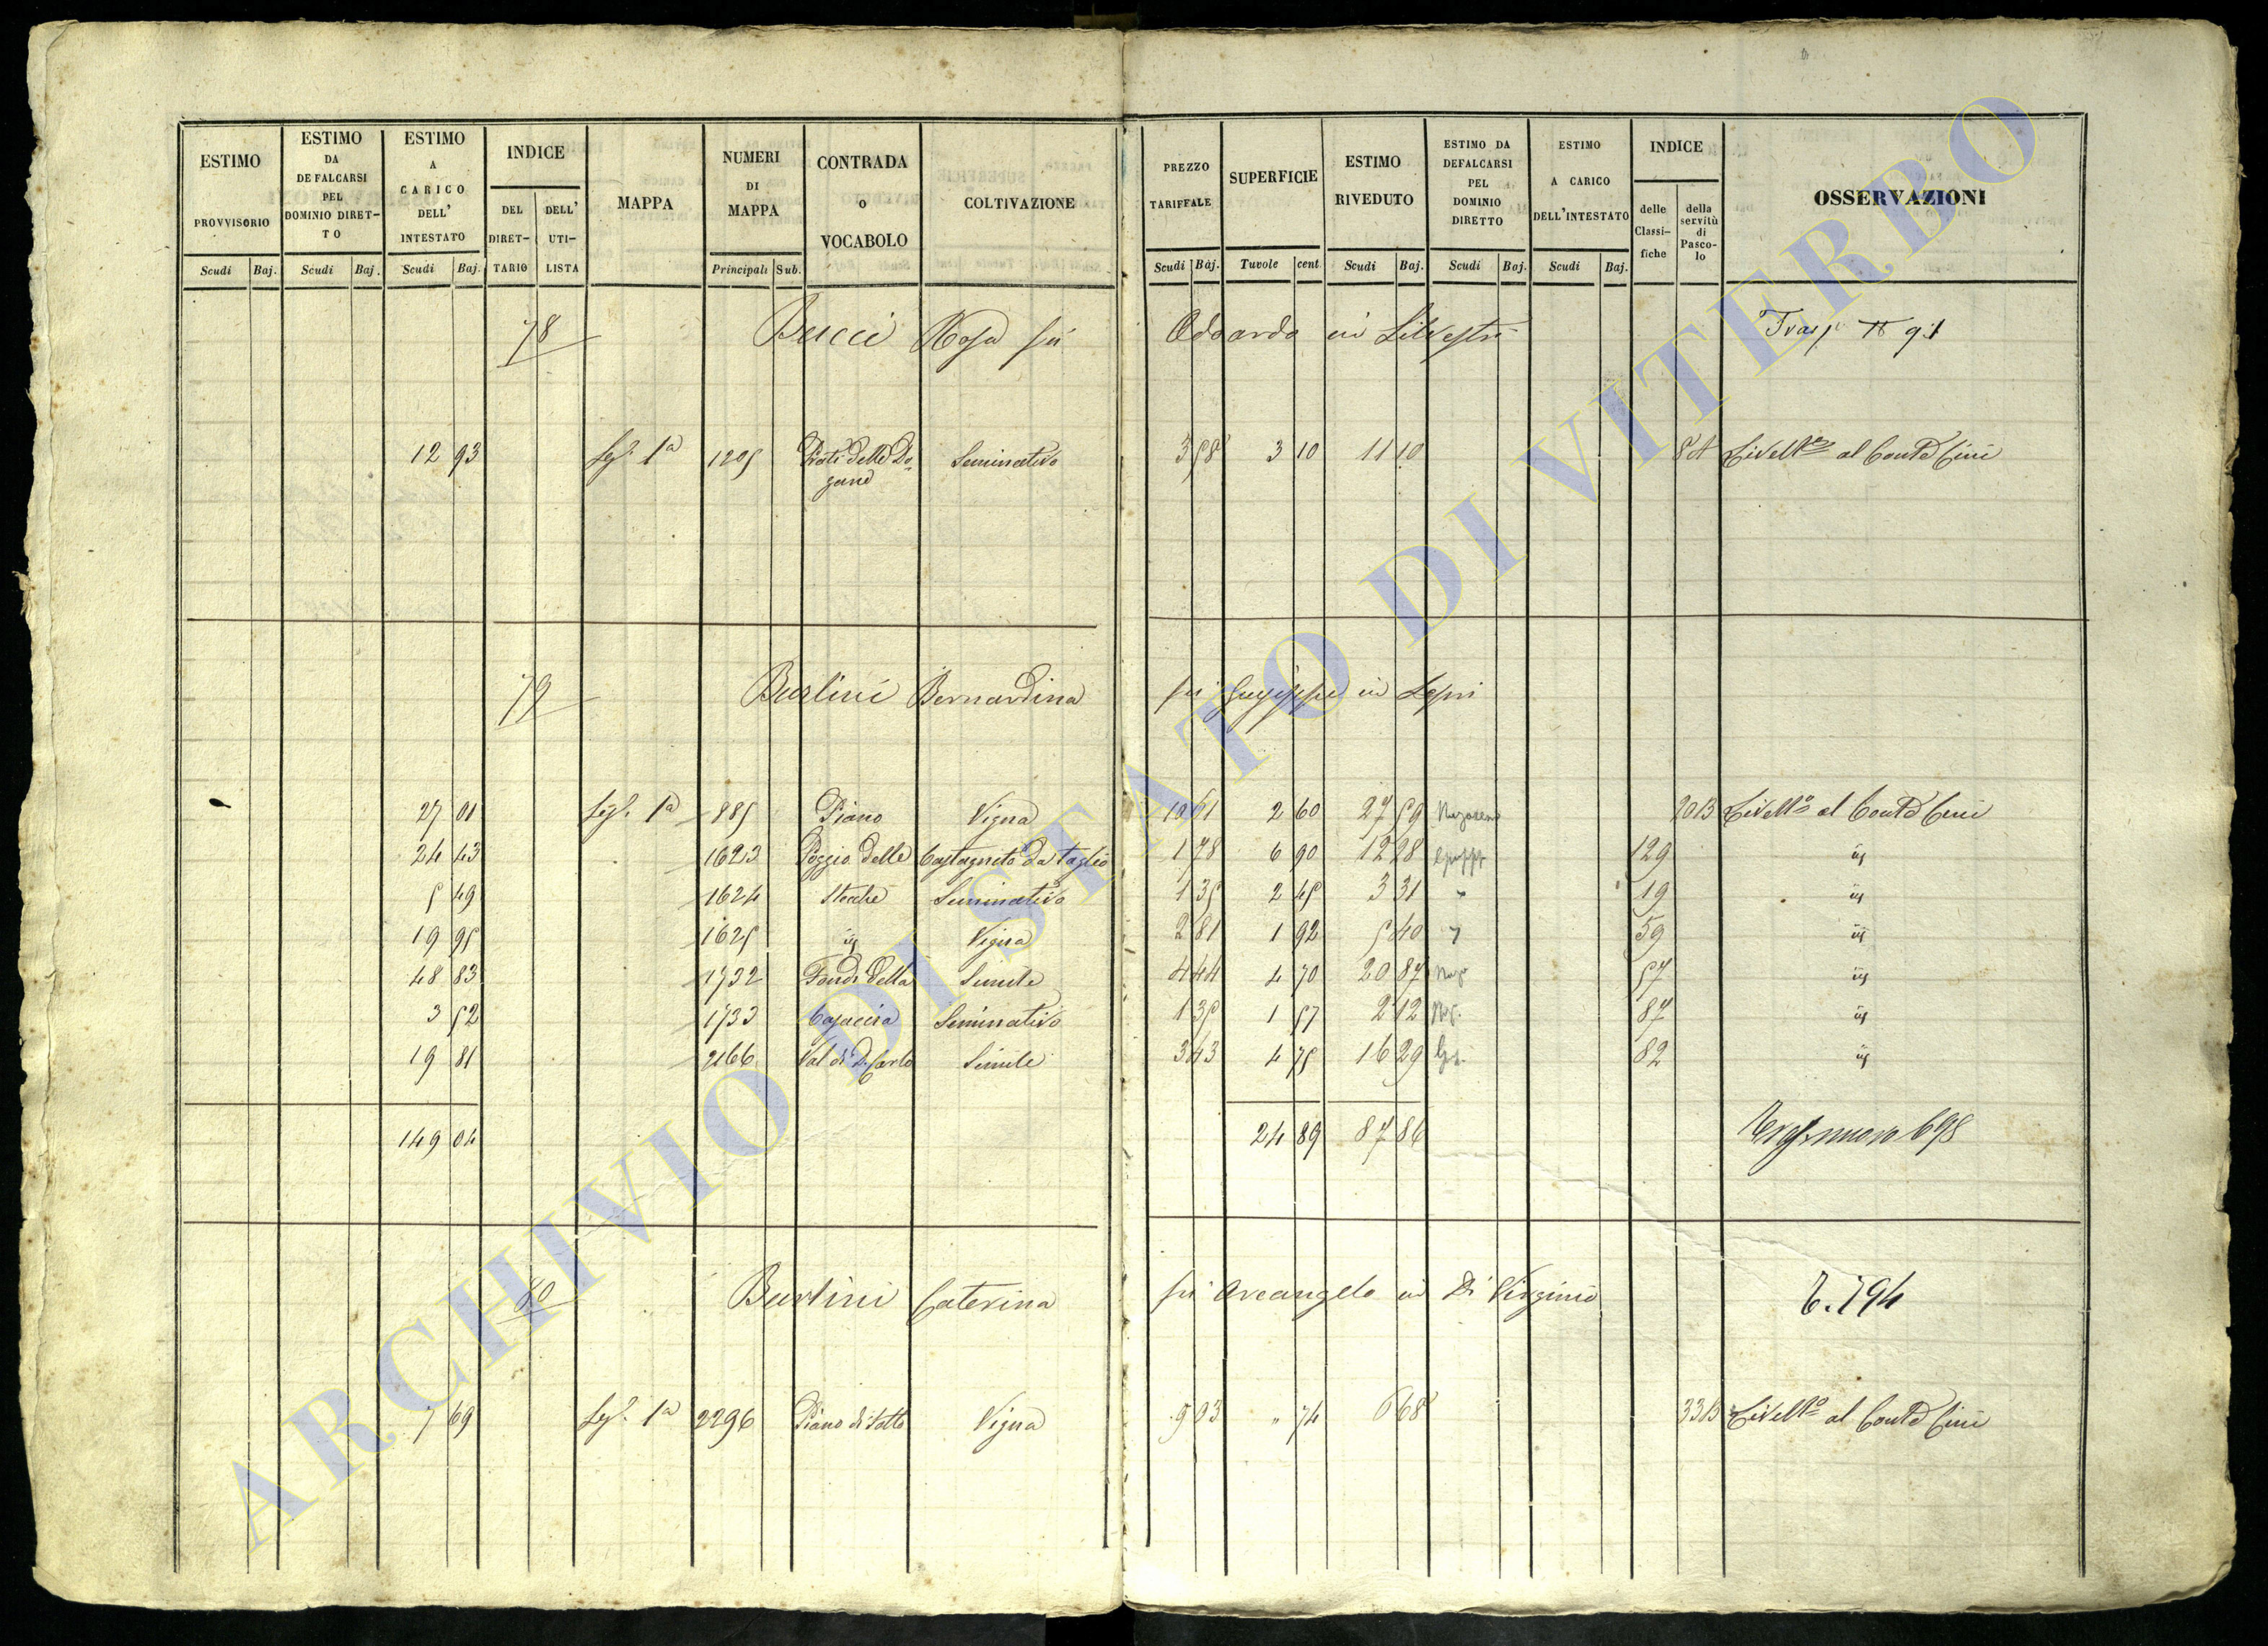 ESTIMO PROVVISORIO Scudi Baj.
ESTIMO DA DEFALCARSI PEL DOMINIO DIRET-TO Scudi Baj.
ESTIMO A CARICO DELL' INTESTATO Scudi Baj.
INDICE DEL DIRET-TARIO DELL' UTI-LISTA
MAPPA
NUMERI DI MAPPA Principali Sub.
CONTRADA O VOCABOLO
COLTIVAZIONE
PREZZO TARIFFALE Scudi Baj.
SUPERFICIE Tuvole cent.
ESTIMO RIVEDUTO Scudi Baj.
ESTIMO DA DEFALCARSI PEL DOMINIO DIRETTO Scudi Baj.
ESTIMO A CARICO DELL'INTESTATO Scudi Baj.
INDICE delle Classi-fiche della servitù di Pasco-lo
OSSERVAZIONI
78 Bucci Rosa fu Odoardo in Silvestri 91
12 93 1ª 1205 Prati delle Do- Seminativo 3 58 3 10 11 10 Livellº al Conte Cini
gane
79 Burlini Bernardina fu Giuseppe in Lepri
27 01 1ª 885 Piano Vigna 10 61 2 60 27 59 20B Livellº al Conte Cini
24 43 1623 Poggio delle Castagneto da taglio 1 78 6 90 12 28 129
5 49 1624 Seminativo 1 35 2 45 3 31 19
19 95 1625 Vigna 2 81 1 92 5 40 59
48 83 1732 Fondi della Simile 4 44 4 70 20 87 57
3 52 1733 Seminativo 1 35 1 57 2 12 87
19 81 2166 Val di D. Carlo Simile 3 43 4 75 16 29 82
149 04 24 89 87 86 698
80 Burlini Caterina fu Arcangelo in Di Virginio 794
7 69 1ª 2296 Piano di Sotto Vigna 9 03 " 74 6 68 33B Livellº al Conte Cini
ARCHIVIO DI STATO DI VITERBO